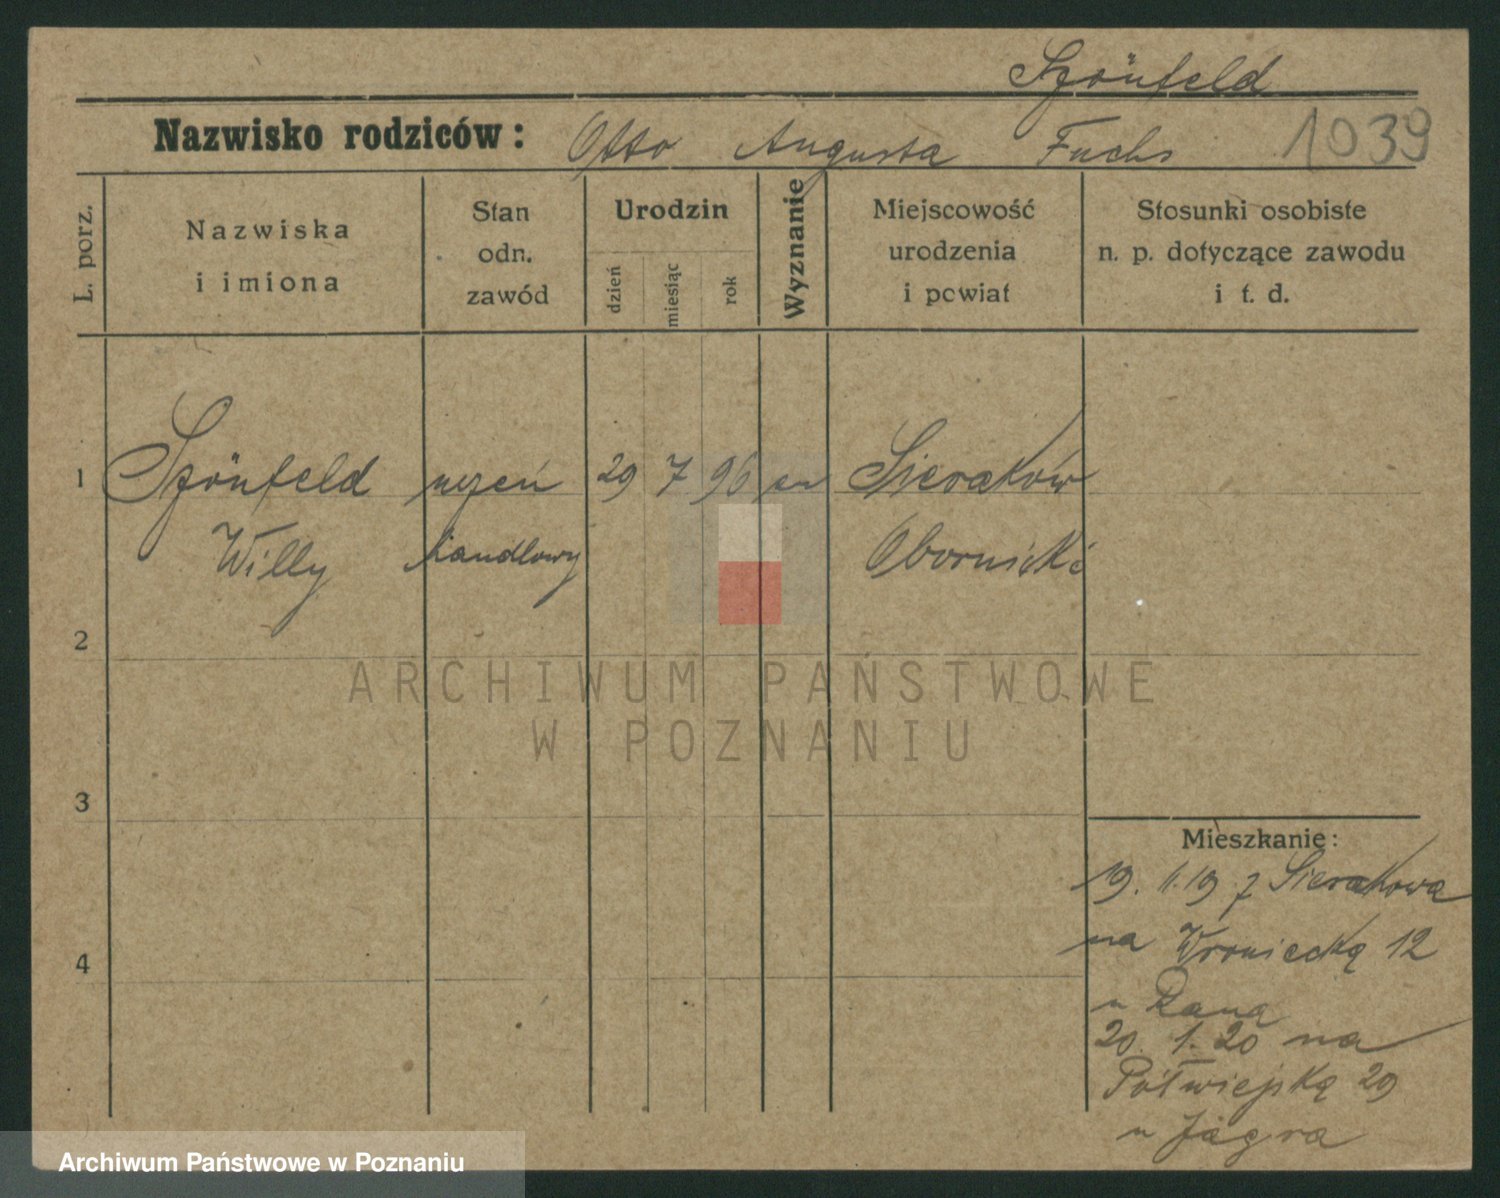 Szönfeld
Nazwisko rodziców: Otto Augusta Fuchs 1039
L. porz.
Nazwiska i imiona
Stan odn. zawód
Urodzin
dzień
miesiąc
rok
Wyznanie
Miejscowość urodzenia i powiat
Stosunki osobiste n. p. dotyczące zawodu i t. d.
1 Szönfeld uczeń 29 7 96 ew Sieraków
Willy handlowy Obornicki
2
3
4
Mieszkanie:
19. 11. 19 z Sierakowa
na Wroniecką 12
u
20. 1. 20 na
Półwiejską 29
u
ARCHIWUM PAŃSTWOWE
W POZNANIU
Archiwum Państwowe w Poznaniu